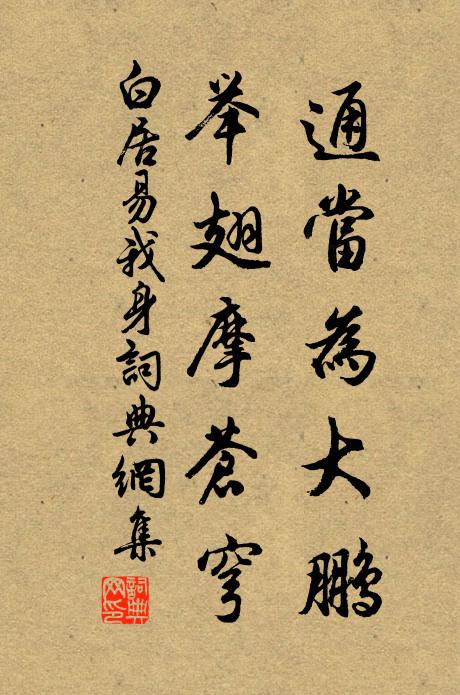 通當為大鵬
举翅摩蒼穹
白居易我身詞典網集
詞典網印